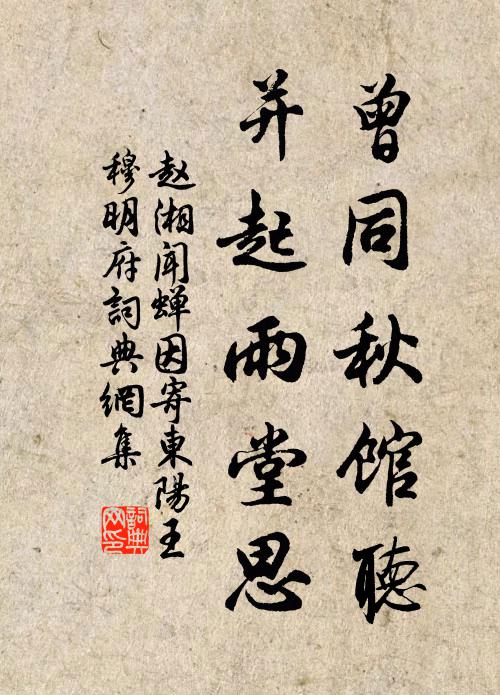 曾同秋馆聽
并起雨堂思
赵湘闻蝉因寄東陽王
穆明府詞典網集
詞典网印